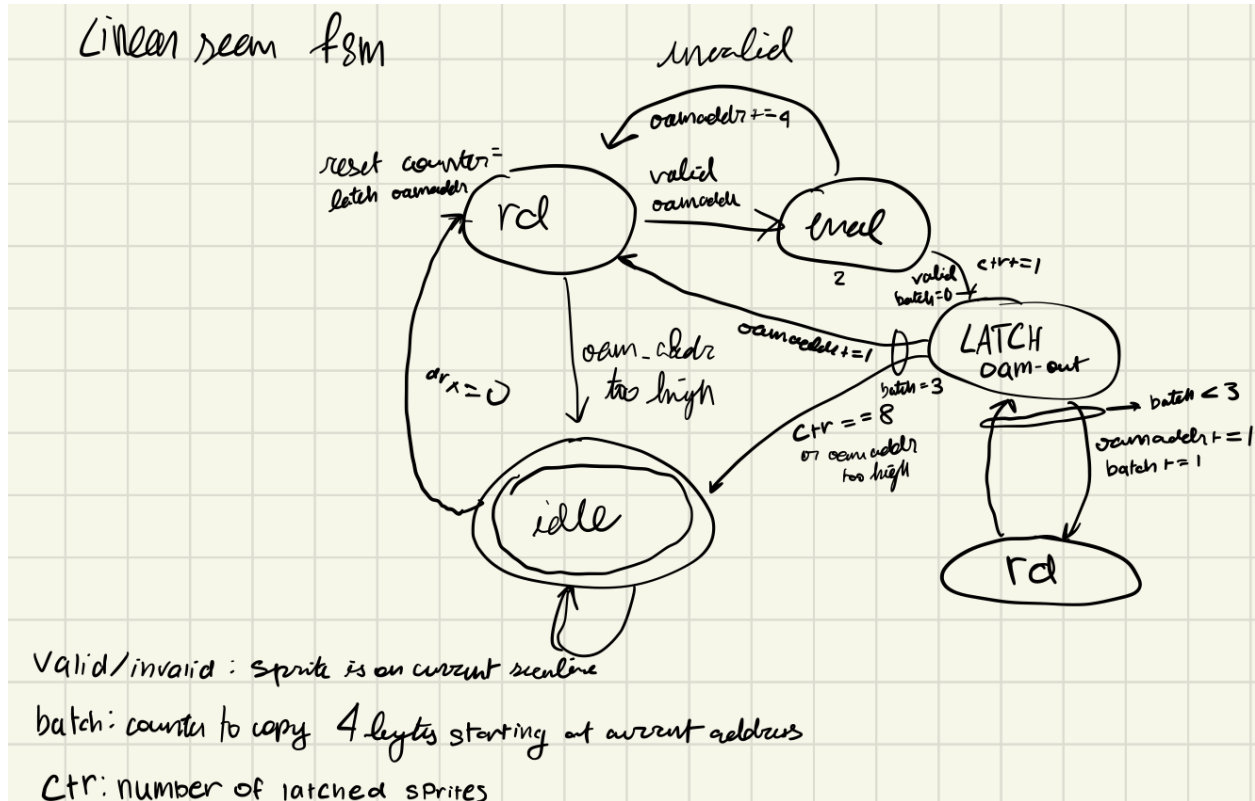 Linear scan fsm
invalid
oamaddr+=4
reset counter=
latch oamaddr
valid
oamaddr
rd
eval
2
ctr+=1
valid
batch=0
LATCH
oam-out
oamaddr+=1
batch=3
ctr==8
or oamaddr
too high
oam_addr
too high
x=0
batch<3
oamaddr+=1
batch+=1
idle
rd
Valid/invalid: sprite is on current scanline
batch: counter to copy 4 bytes starting at current address
ctr: number of latched sprites